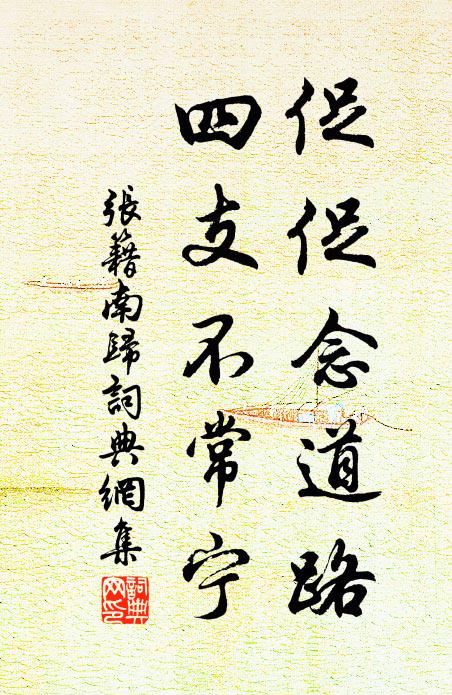 促促念道路
四支不常宁
張籍南歸詞典網集
詞典网印